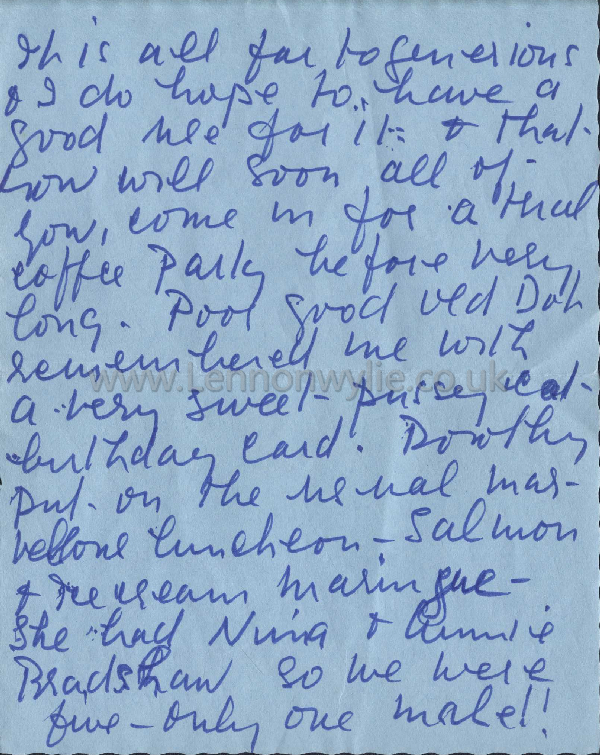 It is all far to generious
& I do hope to have a
good use for it & that
you will soon all of
you, come in for a real
coffee Party before very
long. Poor good old Dot
remembered me with
www.Lennonwylie.co.uk
a very sweet pussey cat
birthday card. Dorothy
put on the usual mar-
vellone luncheon - Salmon
& Icecream maringue -
She had Nina & Annie
Bradshaw so we were
five - only one male!!